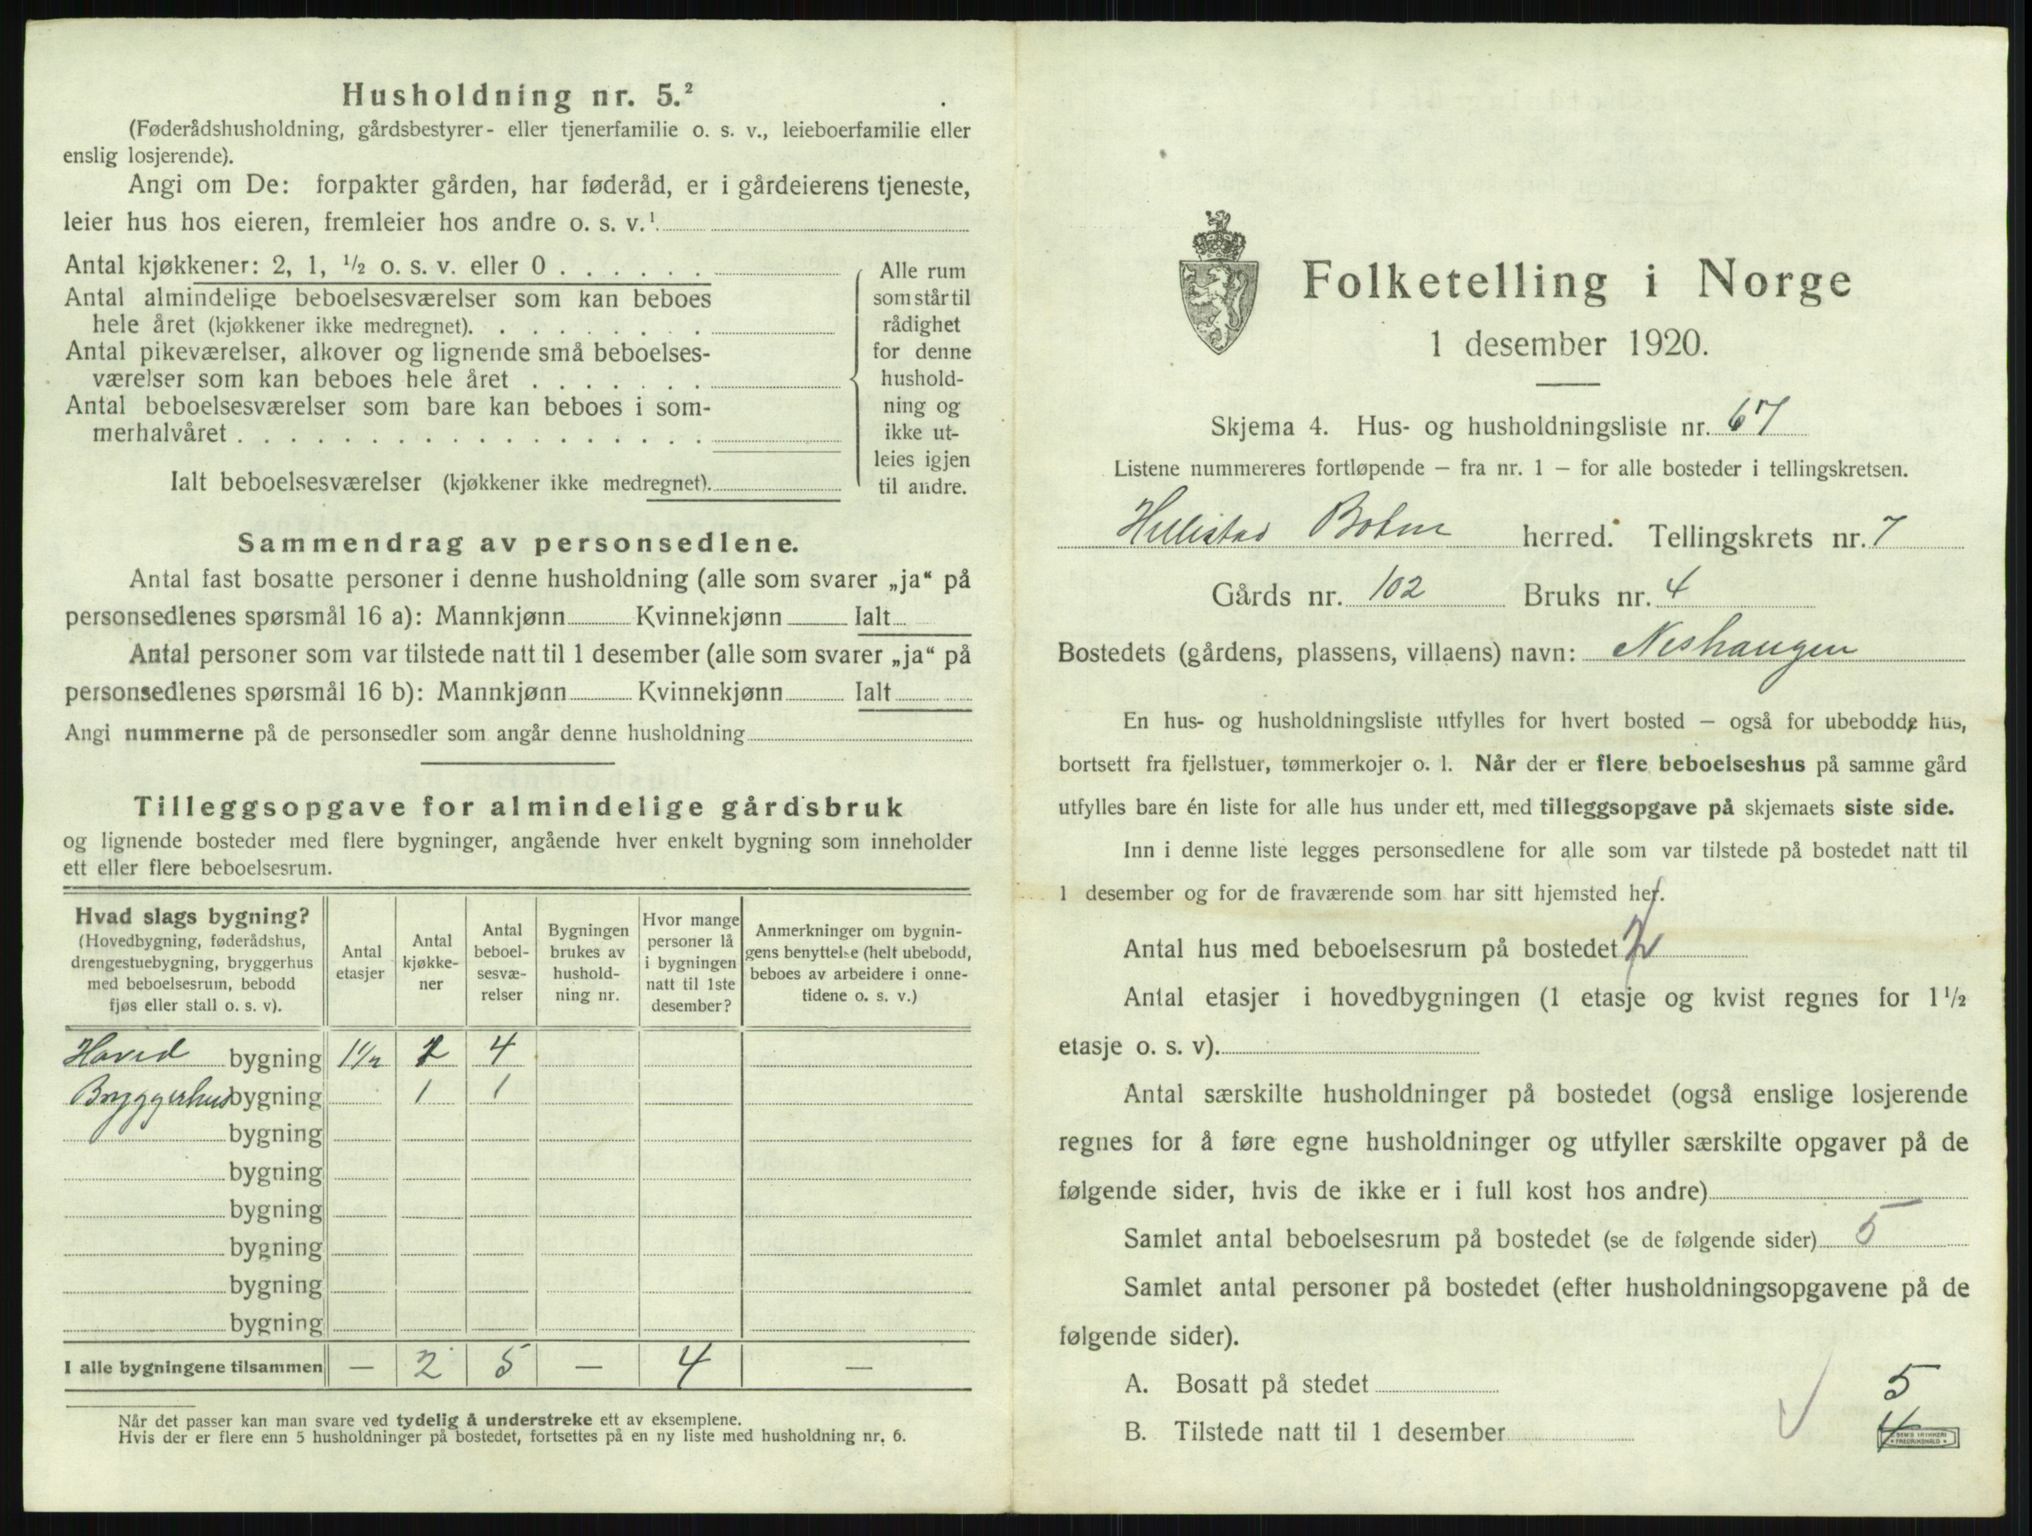 Husholdning nr. 5.²
(Føderådshusholdning, gårdsbestyrer- eller tjenerfamilie o. s. v., leieboerfamilie eller
enslig losjerende).
Angi om De: forpakter gården, har føderåd, er i gårdeierens tjeneste,
leier hus hos eieren, fremleier hos andre o. s. v.¹
Antal kjøkkener: 2, 1, ½ o. s. v. eller 0 . . . . . .
Antal almindelige beboelsesværelser som kan beboes
hele året (kjøkkener ikke medregnet). . . . . . . . .
Antal pikeværelser, alkover og lignende små beboelses-
værelser som kan beboes hele året . . . . . . .
Antal beboelsesværelser som bare kan beboes i som-
merhalvåret . . . . . . . . . . . . . . . . . .
Ialt beboelsesværelser (kjøkkener ikke medregnet).
Alle rum
som står til
rådighet
for denne
hushold-
ning og
ikke ut-
leies igjen
til andre.
Sammendrag av personsedlene.
Antal fast bosatte personer i denne husholdning (alle som svarer „ja“ på
personsedlenes spørsmål 16 a): Mannkjønn Kvinnekjønn Ialt
Antal personer som var tilstede natt til 1 desember (alle som svarer „ja“ på
personsedlenes spørsmål 16 b): Mannkjønn Kvinnekjønn Ialt
Angi nummerne på de personsedler som angår denne husholdning
Tilleggsopgave for almindelige gårdsbruk
og lignende bosteder med flere bygninger, angående hver enkelt bygning som inneholder
ett eller flere beboelsesrum.
Hvad slags bygning?
(Hovedbygning, føderådshus,
drengestuebygning, bryggerhus
med beboelsesrum, bebodd
fjøs eller stall o. s. v).
Antal
etasjer
Antal
kjøkke-
ner
Antal
beboel-
sesvæ-
relser
Bygningen
brukes av
hushold-
ning nr.
Hvor mange
personer lå
i bygningen
natt til 1ste
desember?
Anmerkninger om bygnin-
gens benyttelse (helt ubebodd,
beboes av arbeidere i onne-
tidene o. s. v.)
Hoved bygning 1½ 1 4
Bryggerhus bygning 1 1
bygning
bygning
bygning
bygning
bygning
bygning
I alle bygningene tilsammen — 2 5 — 4 —
Når det passer kan man svare ved tydelig å understreke ett av eksemplene.
Hvis der er flere enn 5 husholdninger på bostedet, fortsettes på en ny liste med husholdning nr. 6.
Folketelling i Norge
1 desember 1920.
Skjema 4. Hus- og husholdningsliste nr. 67
Listene nummereres fortløpende – fra nr. 1 – for alle bosteder i tellingskretsen.
Hillestad Botne herred. Tellingskrets nr. 7
Gårds nr. 102 Bruks nr. 4
Bostedets (gårdens, plassens, villaens) navn: Neshaugen
En hus- og husholdningsliste utfylles for hvert bosted – også for ubebodde hus,
bortsett fra fjellstuer, tømmerkojer o. l. Når der er flere beboelseshus på samme gård
utfylles bare én liste for alle hus under ett, med tilleggsopgave på skjemaets siste side.
Inn i denne liste legges personsedlene for alle som var tilstede på bostedet natt til
1 desember og for de fraværende som har sitt hjemsted her.
Antal hus med beboelsesrum på bostedet 2
Antal etasjer i hovedbygningen (1 etasje og kvist regnes for 1½
etasje o. s. v).
Antal særskilte husholdninger på bostedet (også enslige losjerende
regnes for å føre egne husholdninger og utfyller særskilte opgaver på de
følgende sider, hvis de ikke er i full kost hos andre)
Samlet antal beboelsesrum på bostedet (se de følgende sider) 5
Samlet antal personer på bostedet (efter husholdningsopgavene på de
følgende sider).
A. Bosatt på stedet 5
B. Tilstede natt til 1 desember 4